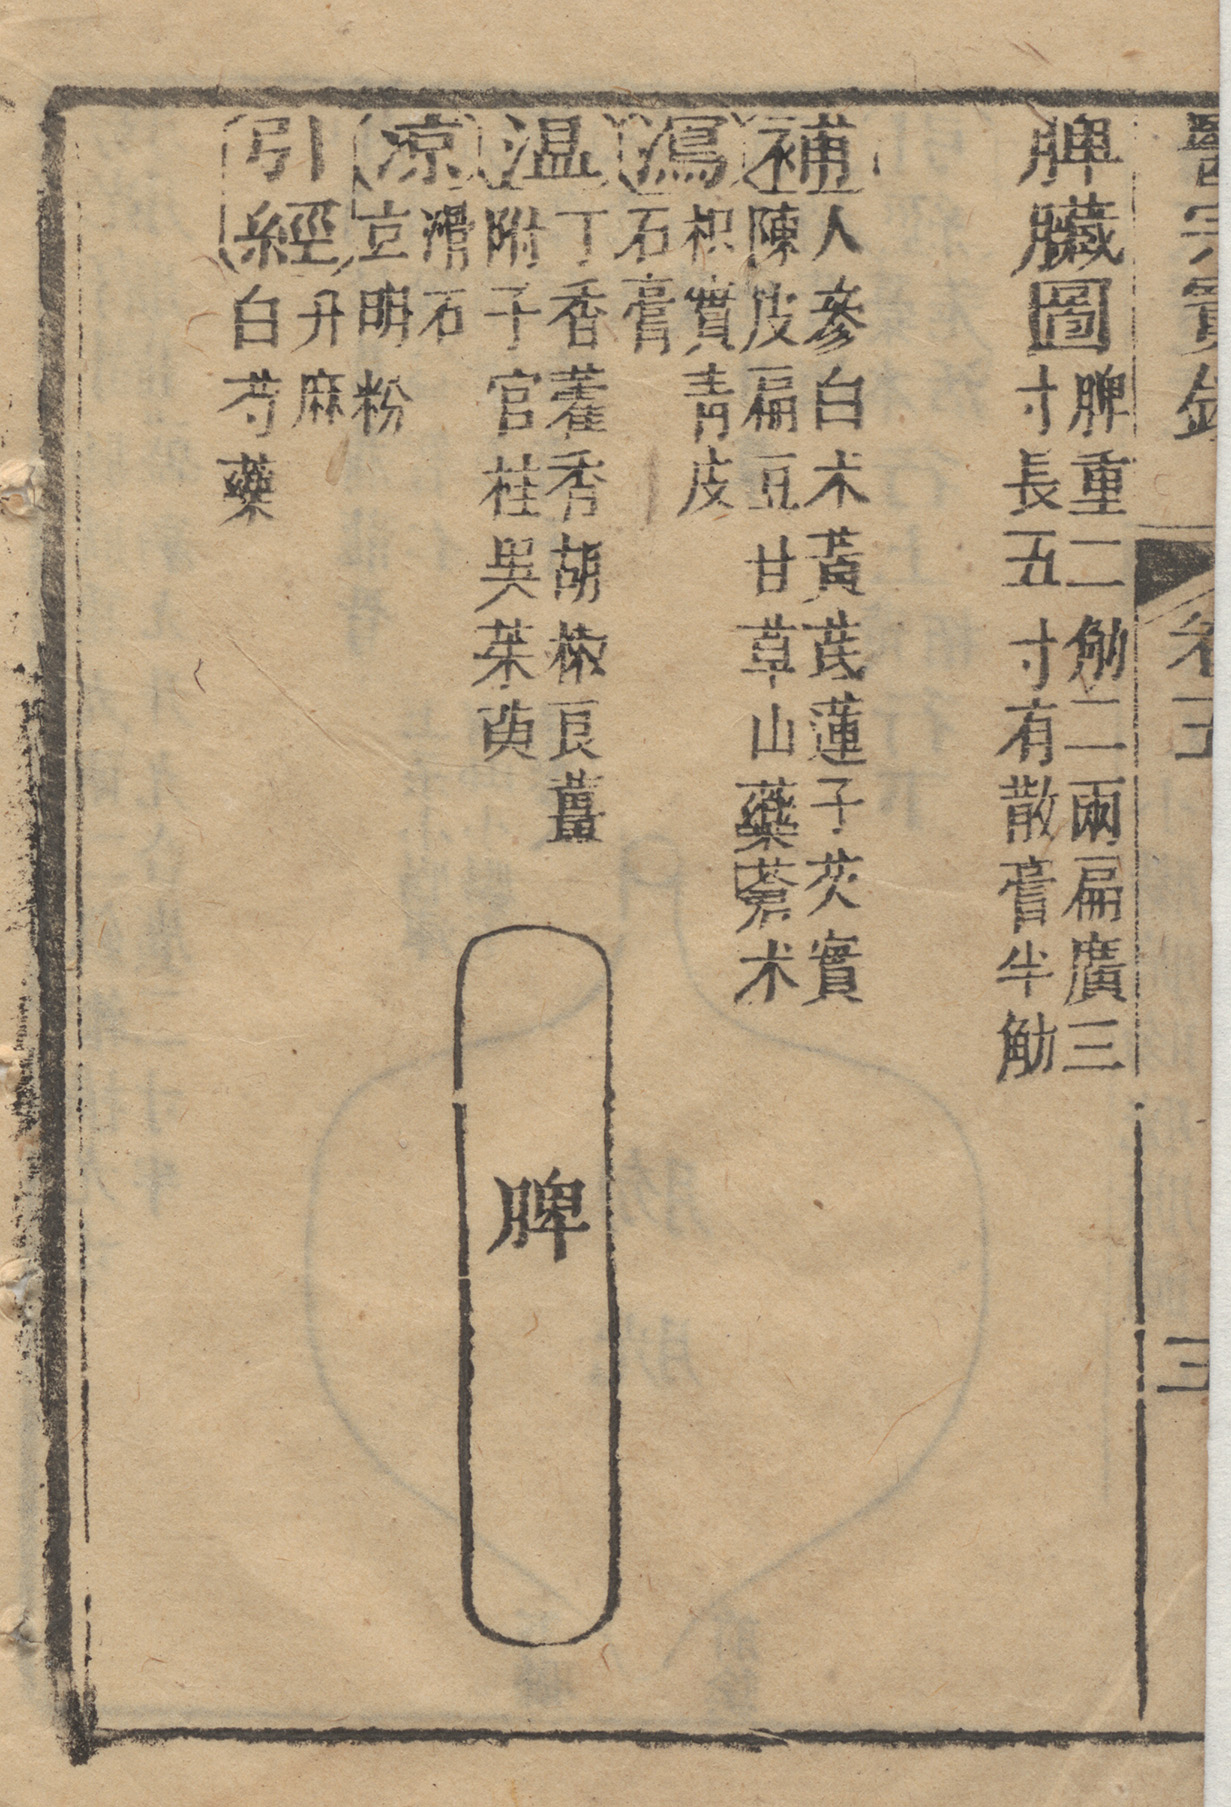 脾臟圖
脾重二觔二兩扁廣三
寸長五寸有散膏半觔
補
人參白术黃芪蓮子芡實
陳皮扁豆甘草山藥蒼术
瀉
枳實青皮
石膏
温
丁香藿香胡椒良薑
附子官桂吳茱萸
凉
滑石
玄明粉
引經
升麻
白芍藥
脾
卷五
三